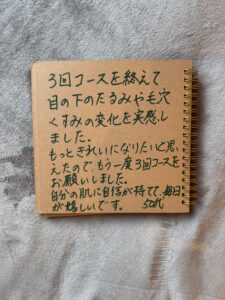 3回コースを終えて
目の下のたるみや毛穴
くすみの変化を実感し
ました。
もっときれいになりたいと思
えたので、もう一度3回コースを
お願いしました。
自分の肌に自信が持てて、毎日
が嬉しいです。 50代